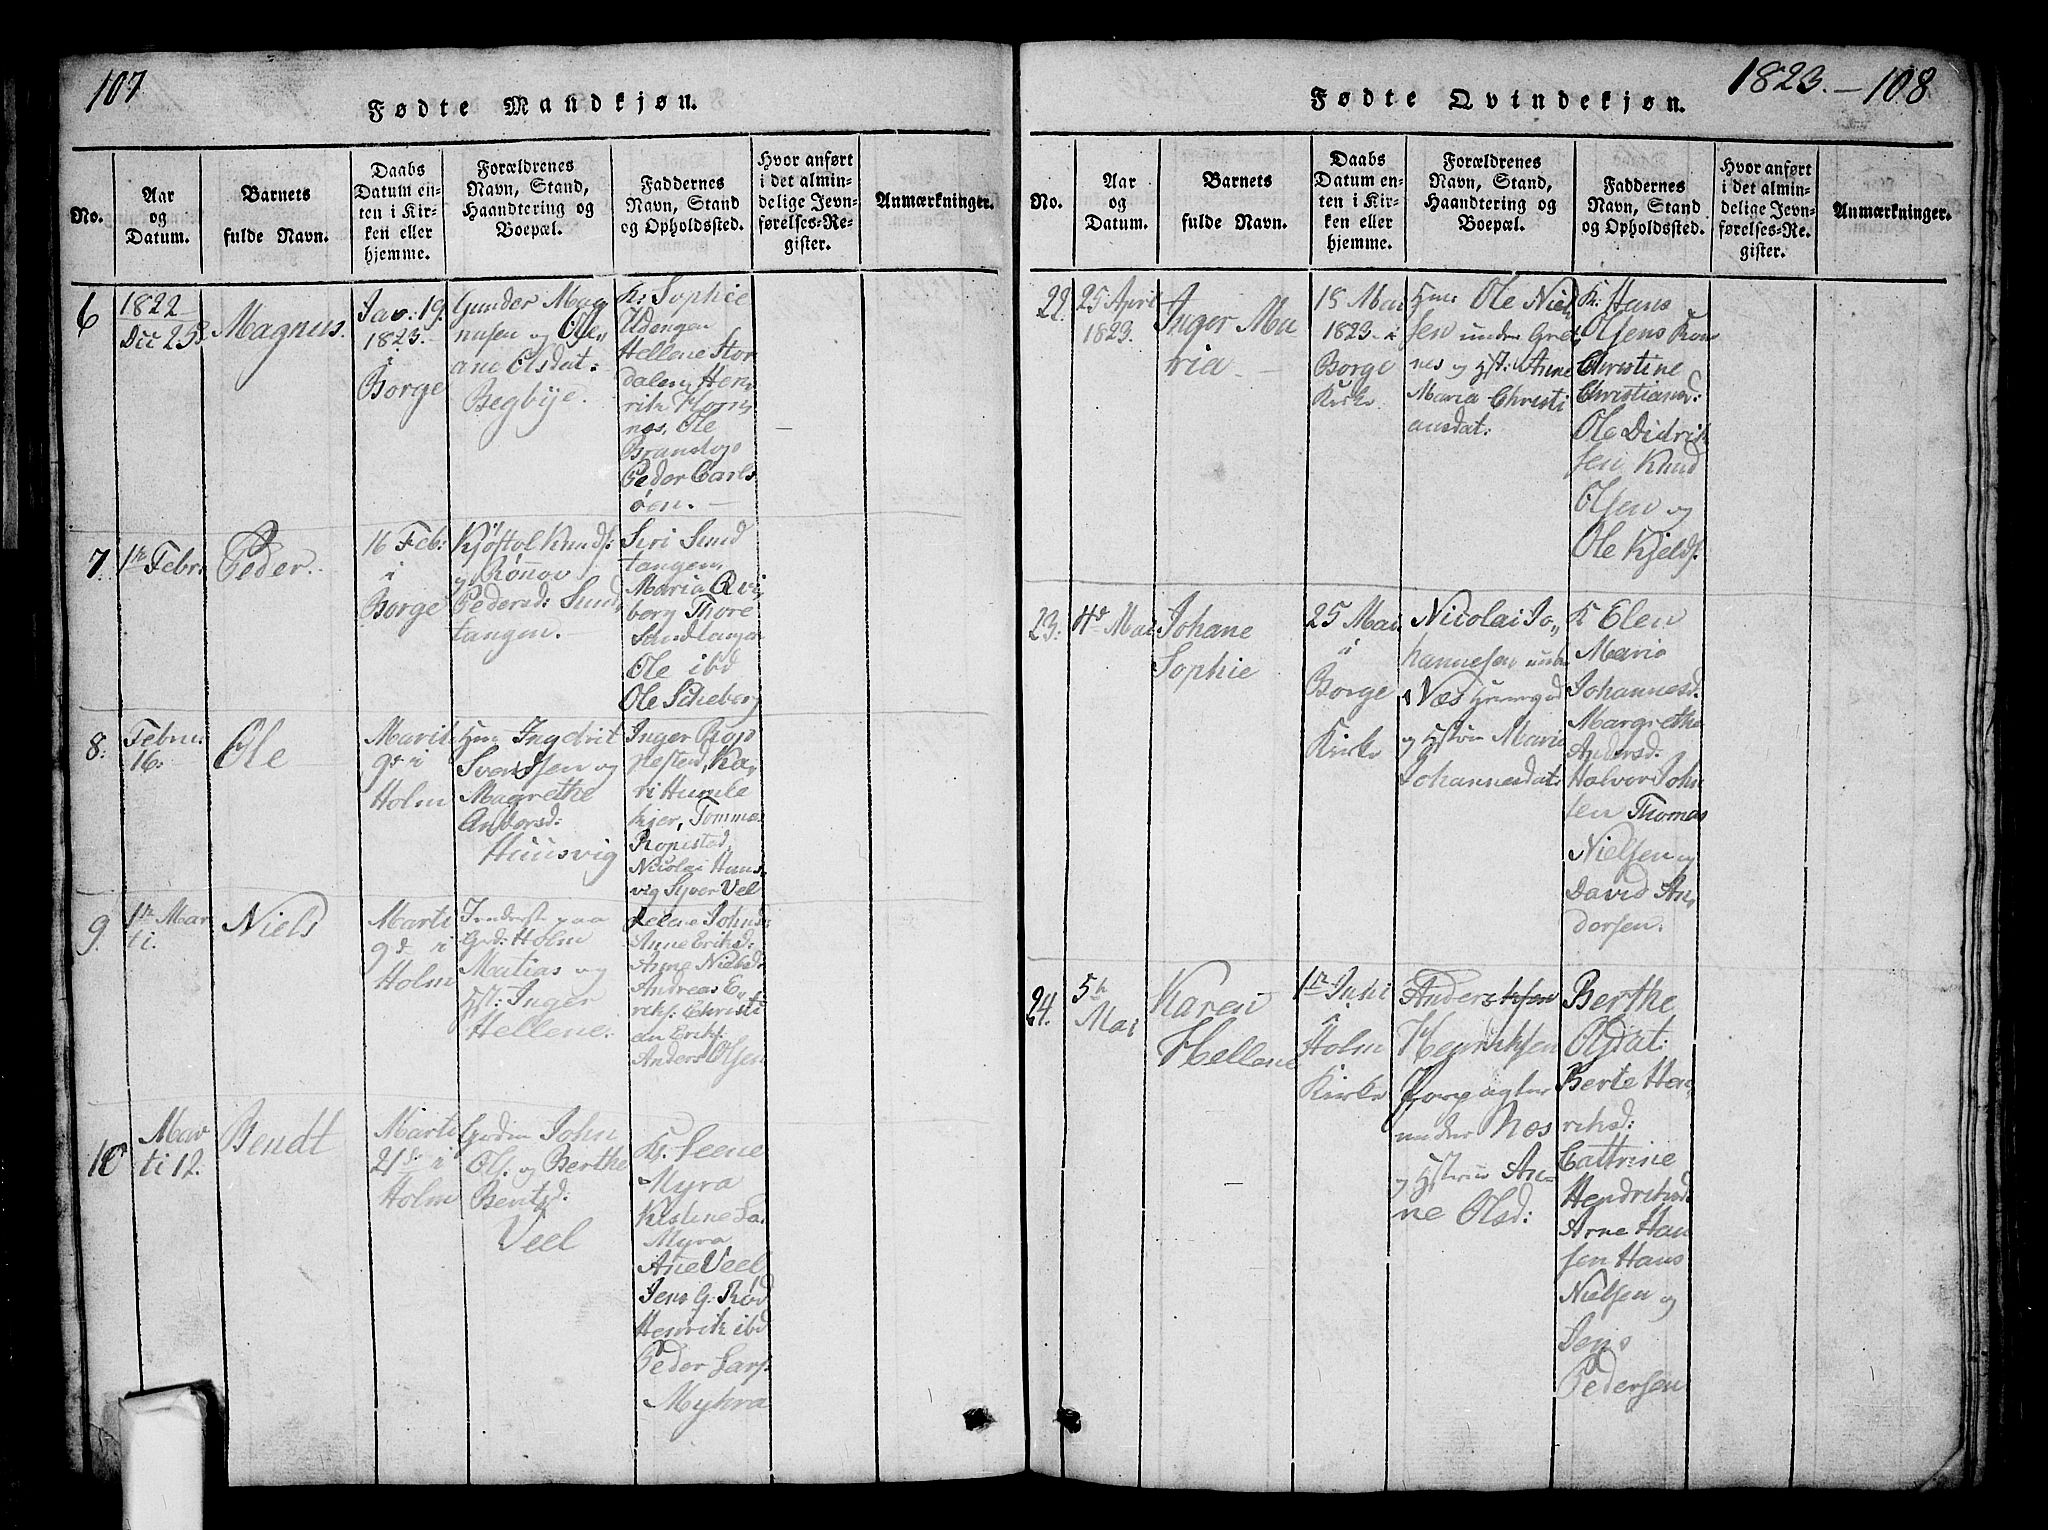 107
Fødte Mandkjøn.
No.
Aar
og
Datum.
Barnets
fulde Navn.
Daabs
Datum en-
ten i Kir-
ken eller
hjemme.
Forældrenes
Navn, Stand,
Haandtering og
Boepæl.
Faddernes
Navn, Stand
og Opholdssted.
Hvor anført
i det almin-
delige Jevn-
førelses-Re-
gister.
Anmærkninger.
6
1822
Dec 25
Magnus.
Jan: 19.
1823.
i
Borge
Gunder Mag
nusen og Ole,,
ane Olsdat:
Begbye.
K: Sophie
Udengen
Hellene Tor
dalen, Hen,
rik Horn,
næs, Ole
Peder Carls
øen. —
7.
1re Febr:
Peder.
16 Feb:
i
Borge
Kjøstol Knuds:
og Rønnov
Pedersd: Sund,
tangen. —
Siri Sund
tangen,
Maria Qvi,
berg Thore
Sundtangen
Ole ibd
Ole Scheberg
8:
Febru:
16.
Ole
Marti
9de i
Holm
Hm: Ingebrit
Svendsen og
Magrethe
Andersd:
Huusvig
Inger Rop
pestad, Ka,
ri Humle
kjer, Tommas
Ropestad,
Nicolai Huus,
vig Syver Vel
9.
1re Mar
ti.
Niels
Marti
9d i
Holm
Inderste paa
Grd: Holm
Matias og
Hst: Inger
Hellene.
Lene Johnsd:
Anne Eriksd:
Anne Nielsd:
Andreas E,
riks: Christi
an Eriks:
Anders Olsen
10
Mar
ti 12.
Bendt
Marti
21de i
Holm
Grdm John
Ol. og Berthe
Bentsd:
Veel
K: Leene
Myra
Kistene La.
Myra
Ane Veel
Jens G. Rød
Henrik ibd
Peder Lars.
Myhra
1823. — 108
Fødte Qvindekjøn.
No.
Aar
og
Datum.
Barnets
fulde Navn.
Daabs
Datum en-
ten i Kir-
ken eller
hjemme.
Forældrenes
Navn, Stand,
Haandtering og
Boepæl.
Faddernes
Navn, Stand
og Opholdssted.
Hvor anført
i det almin-
delige Jevn-
førelses-Re-
gister.
Anmærkninger.
22.
25 April
1823.
Inger Ma
ria —
18 Mai
1823 i
Borge
Kirke
Hm: Ole Niel,
sen under Græl,
næs og Hst: Anne
Maria Christi
ansdat:
K: Hans
Olsens Kone
Christine
Christiansd:
Ole Didrik
sen Knud
Olsen og
Ole Kjelds.
23.
4de Mai
Johane
Sophie
25 Mai
i
Borge
Kirke
Nicolai Jo,,
hannesen under
Næs Huusmand
og Hstru Maria
Johannesdat:
K Elen
Maria
Johannesd.
Margrethe
Andersd:
Halvor John
sen Thomas
Nielsen og
David An,
dersen.
24.
5te
Mai
Karen
Hellene
1re Juni
i
Holm
Kirke
Anders
Henriksen
Forpagter
under Næs
og Hstrue An-
ne Olsd:
Berthe
Olsdat:
Berte Hen,
riksd:
Cattrine
Hendriksd
Arne Han
sen Hans
Nielsen og
Jens
Pedersen